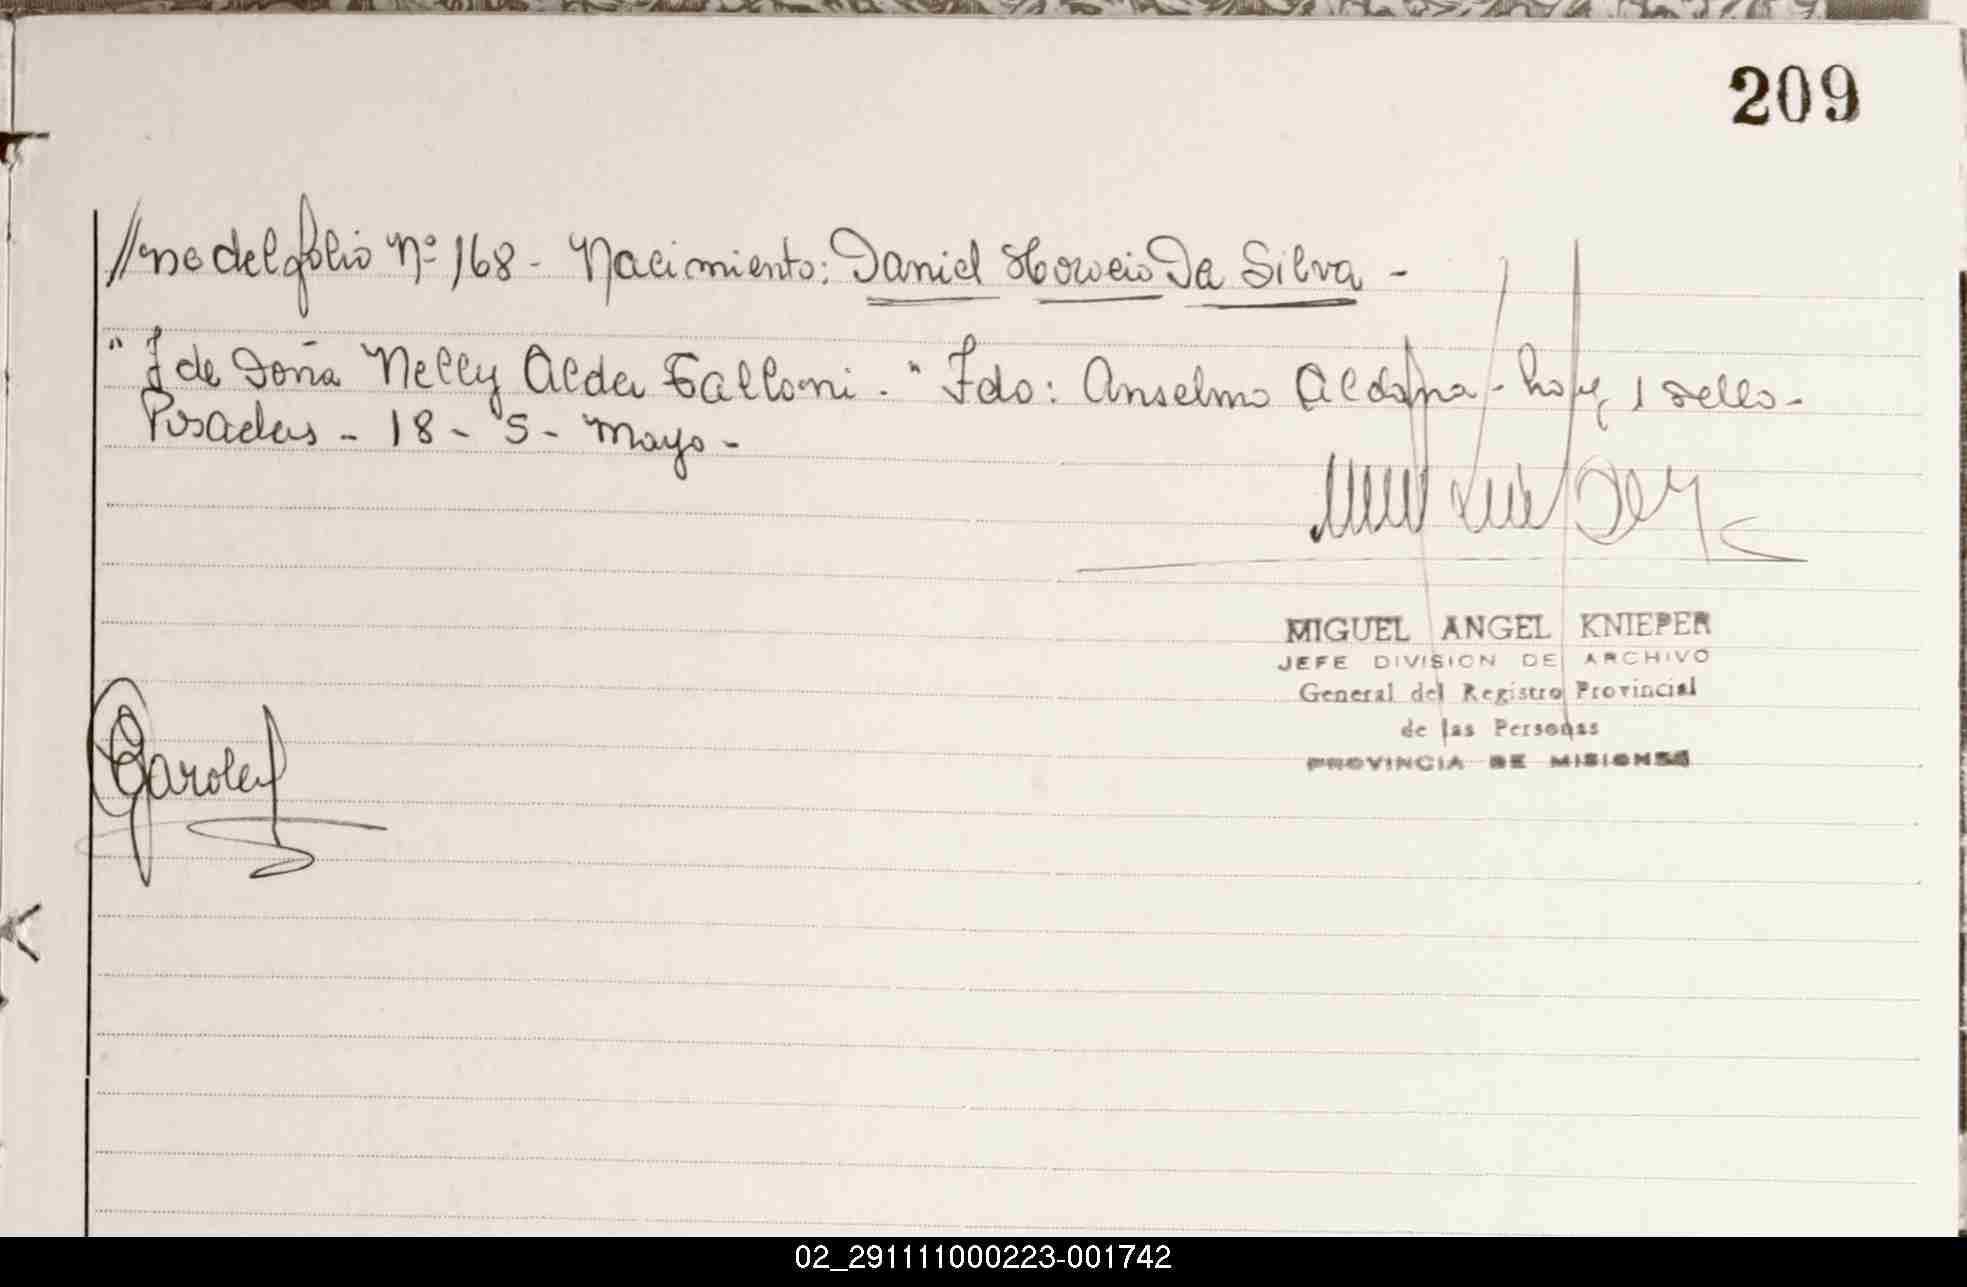 209
//ne del folio Nº 168 - Nacimiento: Daniel Horacio Da Silva -
" I de Doña Nelly Alda Galloni. " Fdo: Anselmo Aldo - hay 1 sello -
Posadas - 18 - 5 - Mayo -
MIGUEL ANGEL KNIEPER
JEFE DIVISION DE ARCHIVO
General del Registro Provincial
de las Personas
PROVINCIA DE MISIONES
02_291111000223-001742